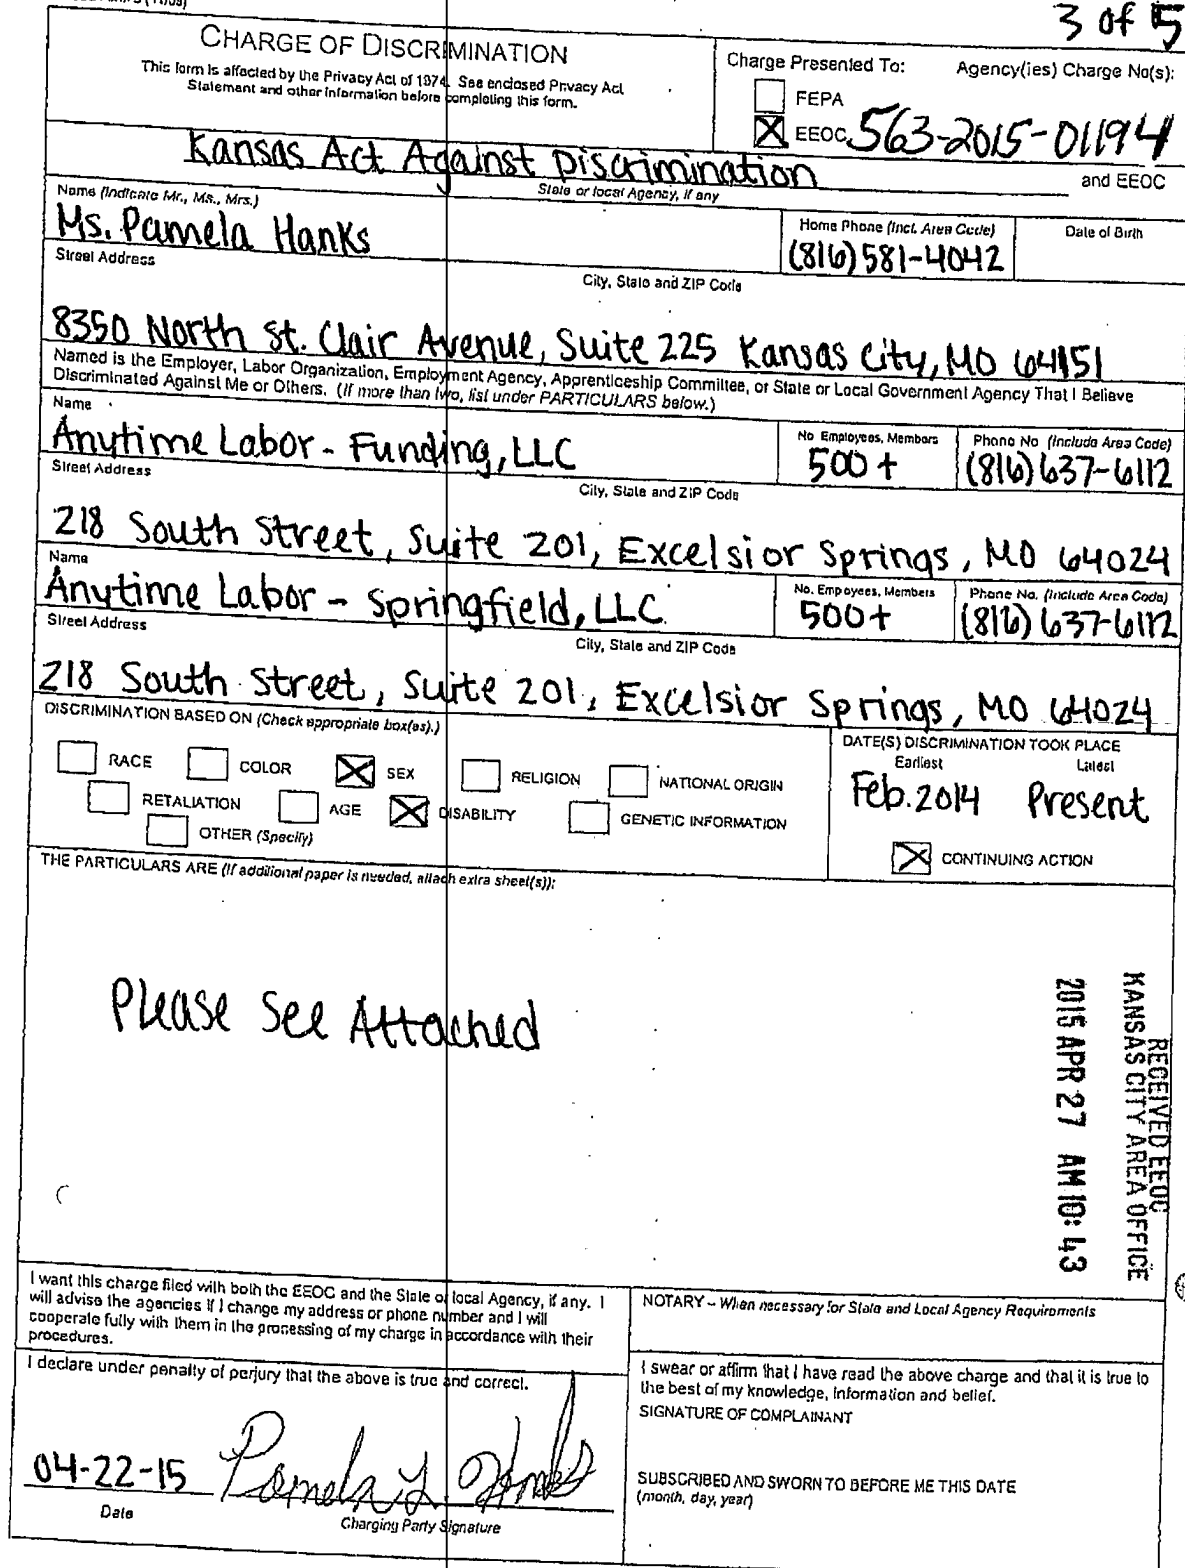 3 of 5
CHARGE OF DISCRIMINATION
This form is affected by the Privacy Act of 1974. See enclosed Privacy Act
Statement and other information before completing this form.
Charge Presented To: Agency(ies) Charge No(s):
FEPA
EEOC 563-2015-01194
Kansas Act Against Discrimination and EEOC
State or local Agency, if any
Name (Indicate Mr., Ms., Mrs.) Home Phone (Incl. Area Code) Date of Birth
Ms. Pamela Hanks (816) 581-4042
Street Address City, State and ZIP Code
8350 North St. Clair Avenue, Suite 225 Kansas City, MO 64151
Named is the Employer, Labor Organization, Employment Agency, Apprenticeship Committee, or State or Local Government Agency That I Believe
Discriminated Against Me or Others. (If more than two, list under PARTICULARS below.)
Name No Employees, Members Phone No (Include Area Code)
Anytime Labor - Funding, LLC 500+ (816) 637-6112
Street Address City, State and ZIP Code
218 South Street, Suite 201, Excelsior Springs, MO 64024
Name No. Employees, Members Phone No. (Include Area Code)
Anytime Labor - Springfield, LLC 500+ (816) 637-6112
Street Address City, State and ZIP Code
218 South Street, Suite 201, Excelsior Springs, MO 64024
DISCRIMINATION BASED ON (Check appropriate box(es).) DATE(S) DISCRIMINATION TOOK PLACE
Earliest Latest
RACE COLOR SEX RELIGION NATIONAL ORIGIN
Feb. 2014 Present
RETALIATION AGE DISABILITY GENETIC INFORMATION
OTHER (Specify)
CONTINUING ACTION
THE PARTICULARS ARE (If additional paper is needed, attach extra sheet(s)):
Please See Attached
RECEIVED EEOC
KANSAS CITY AREA OFFICE
2015 APR 27 AM 10: 43
I want this charge filed with both the EEOC and the State or local Agency, if any. I
will advise the agencies if I change my address or phone number and I will
cooperate fully with them in the processing of my charge in accordance with their
procedures.
NOTARY – When necessary for State and Local Agency Requirements
I declare under penalty of perjury that the above is true and correct.
I swear or affirm that I have read the above charge and that it is true to
the best of my knowledge, information and belief.
SIGNATURE OF COMPLAINANT
04-22-15 Pamela L Hanks
Date Charging Party Signature
SUBSCRIBED AND SWORN TO BEFORE ME THIS DATE
(month, day, year)